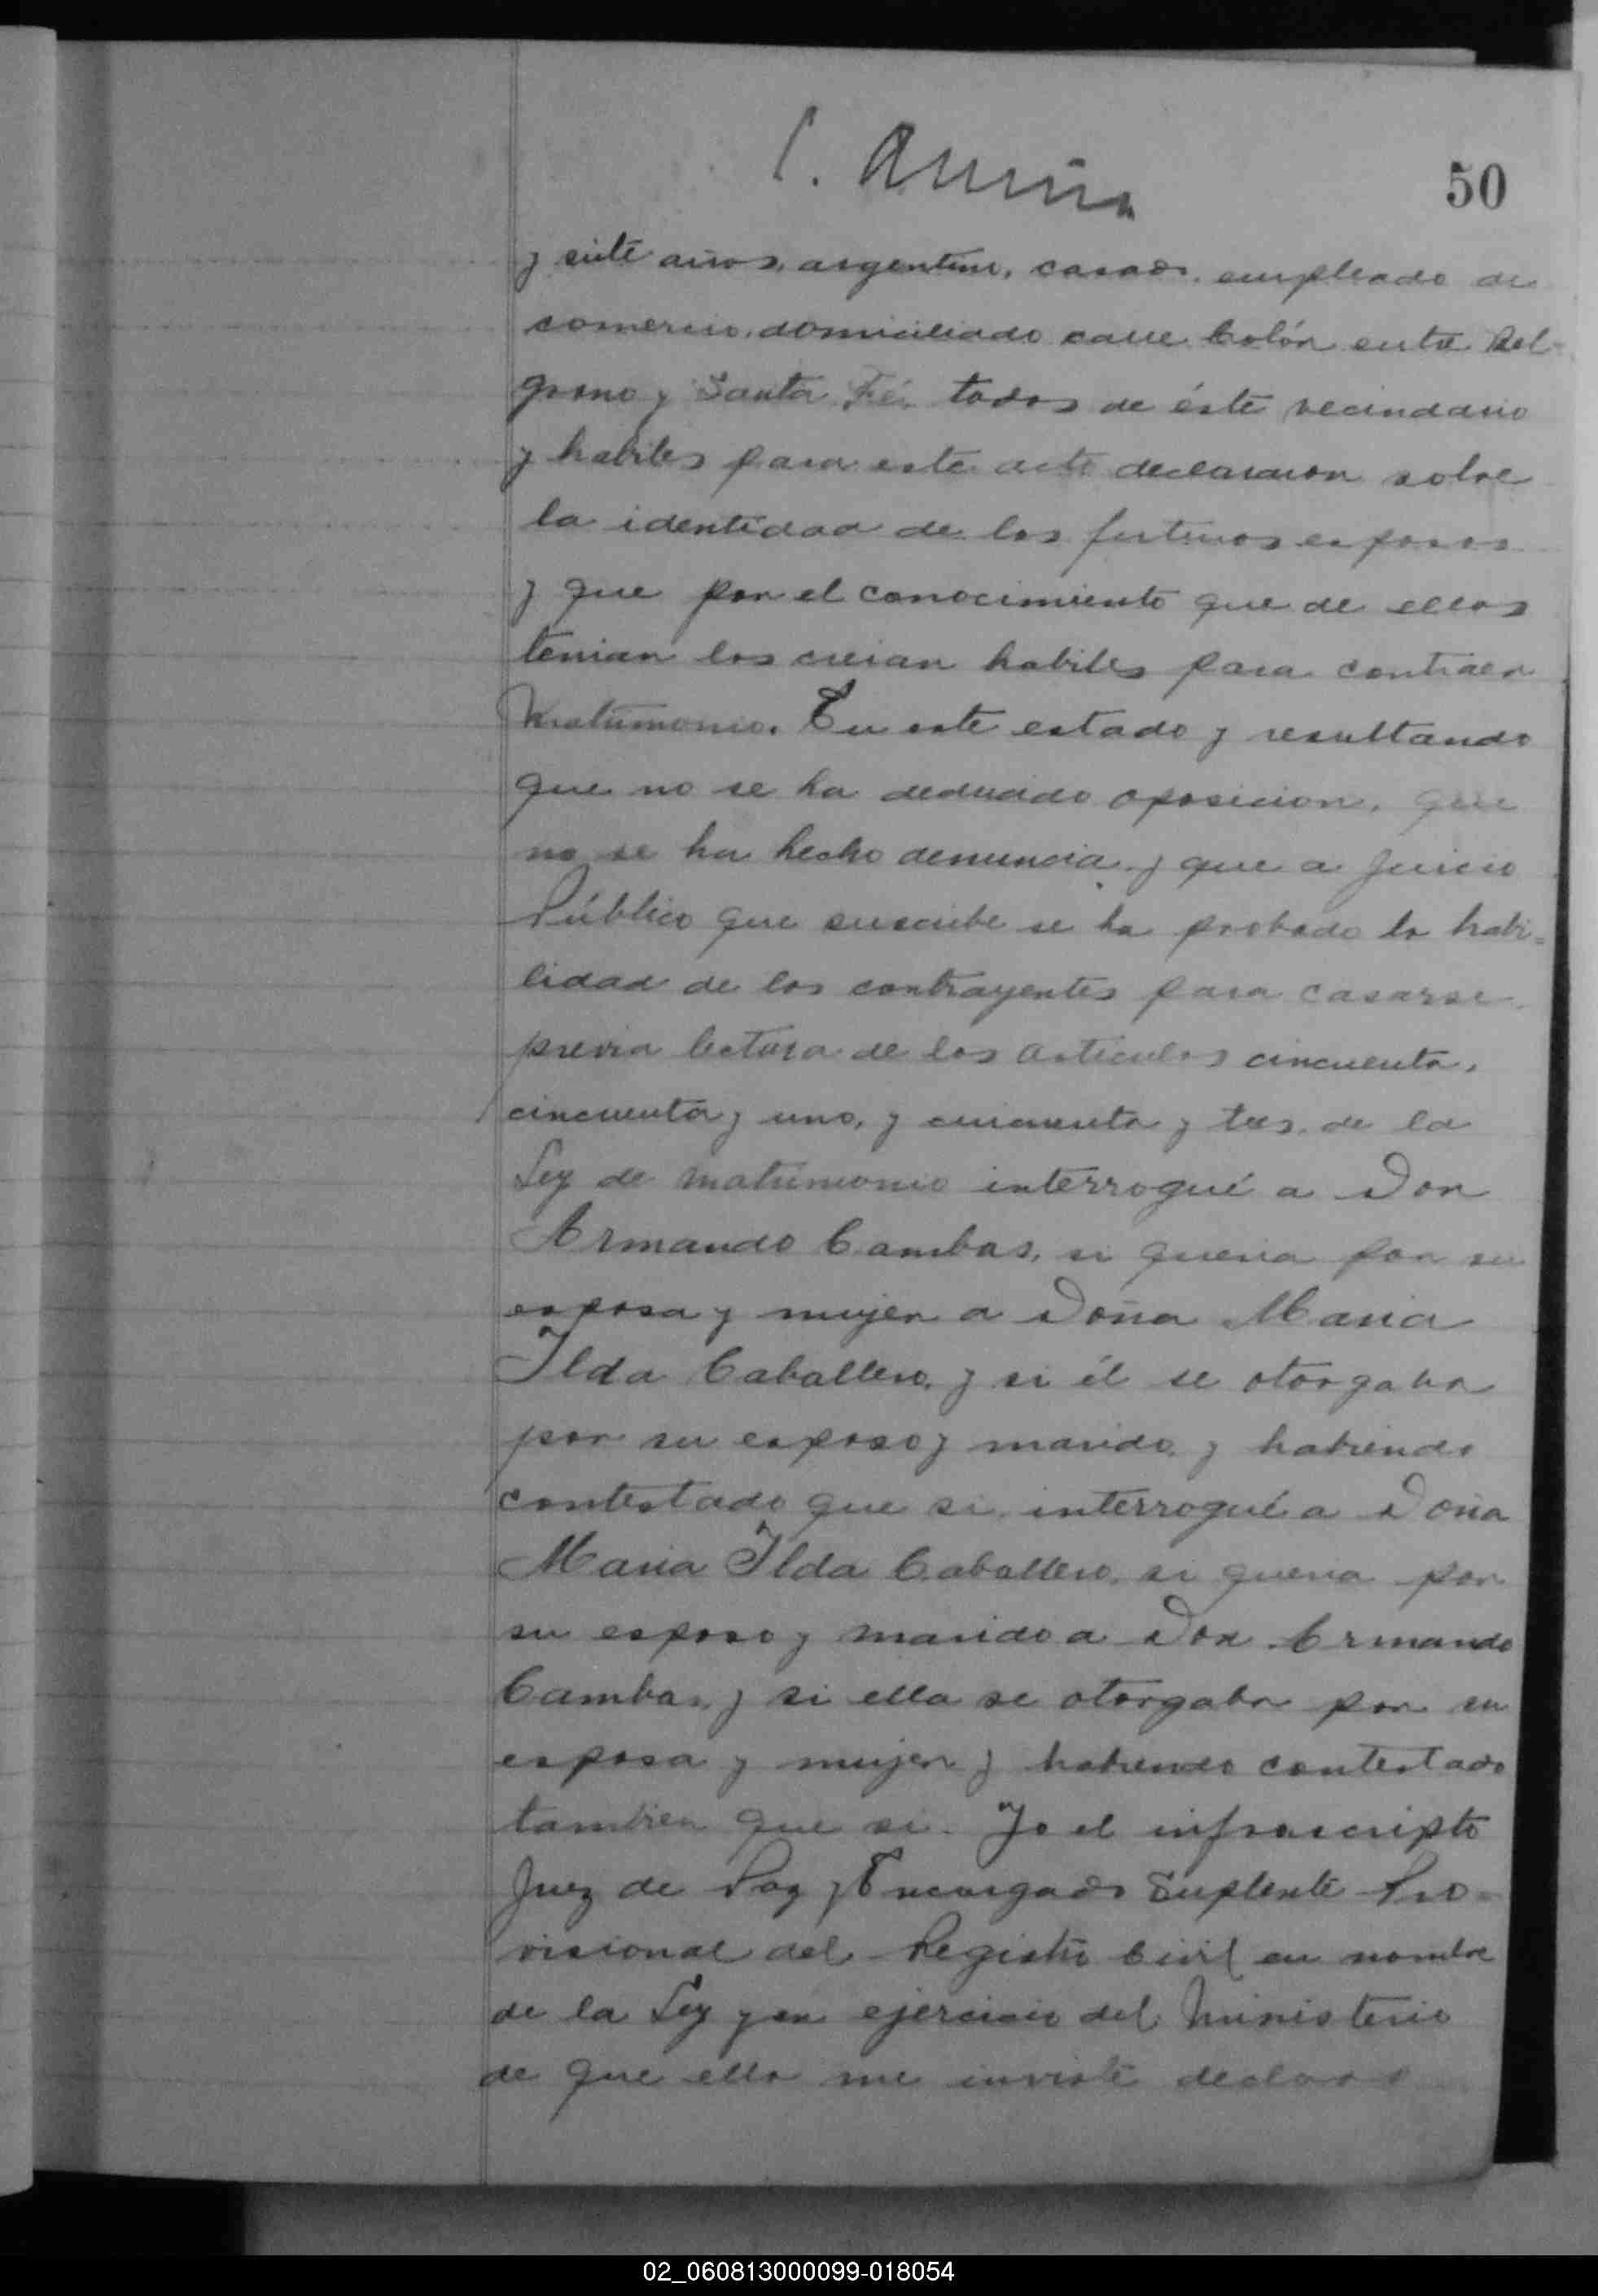 50
y siete años, argentino, casado, empleado de
comercio, domiciliado calle Colón entre Bel-
grano y Santa Fé, todos de éste vecindario
y habiles para este acto declararon sobre
la identidad de los futuros esposos
y que por el conocimiento que de ellos
tenian los creian habiles para contraer
Matrimonio. En este estado y resultando
que no se ha deducido oposicion, que
no se ha hecho denuncia y que a juicio
Público que suscribe se ha probado la habi-
lidad de los contrayentes para casarse
previa lectura de los articulos cincuenta,
cincuenta y uno, y cincuenta y tres, de la
Ley de matrimonio interrogué a Don
Armando Cambas, si queria por su
esposa y mujer a Doña Maria
Ilda Caballero, y si él se otorgaba
por su esposo y marido, y habiendo
contestado que si, interrogué a Doña
Maria Ilda Caballero, si queria por
su esposo y marido a Don Armando
Cambas, y si ella se otorgaba por su
esposa y mujer y habiendo contestado
tambien que si. Yo el infrascripto
Juez de Paz y Encargado Suplente Pro-
visional del Registro Civil en nombre
de la Ley y en ejercicio del Ministerio
de que ella me inviste declaro
02_060813000099-018054